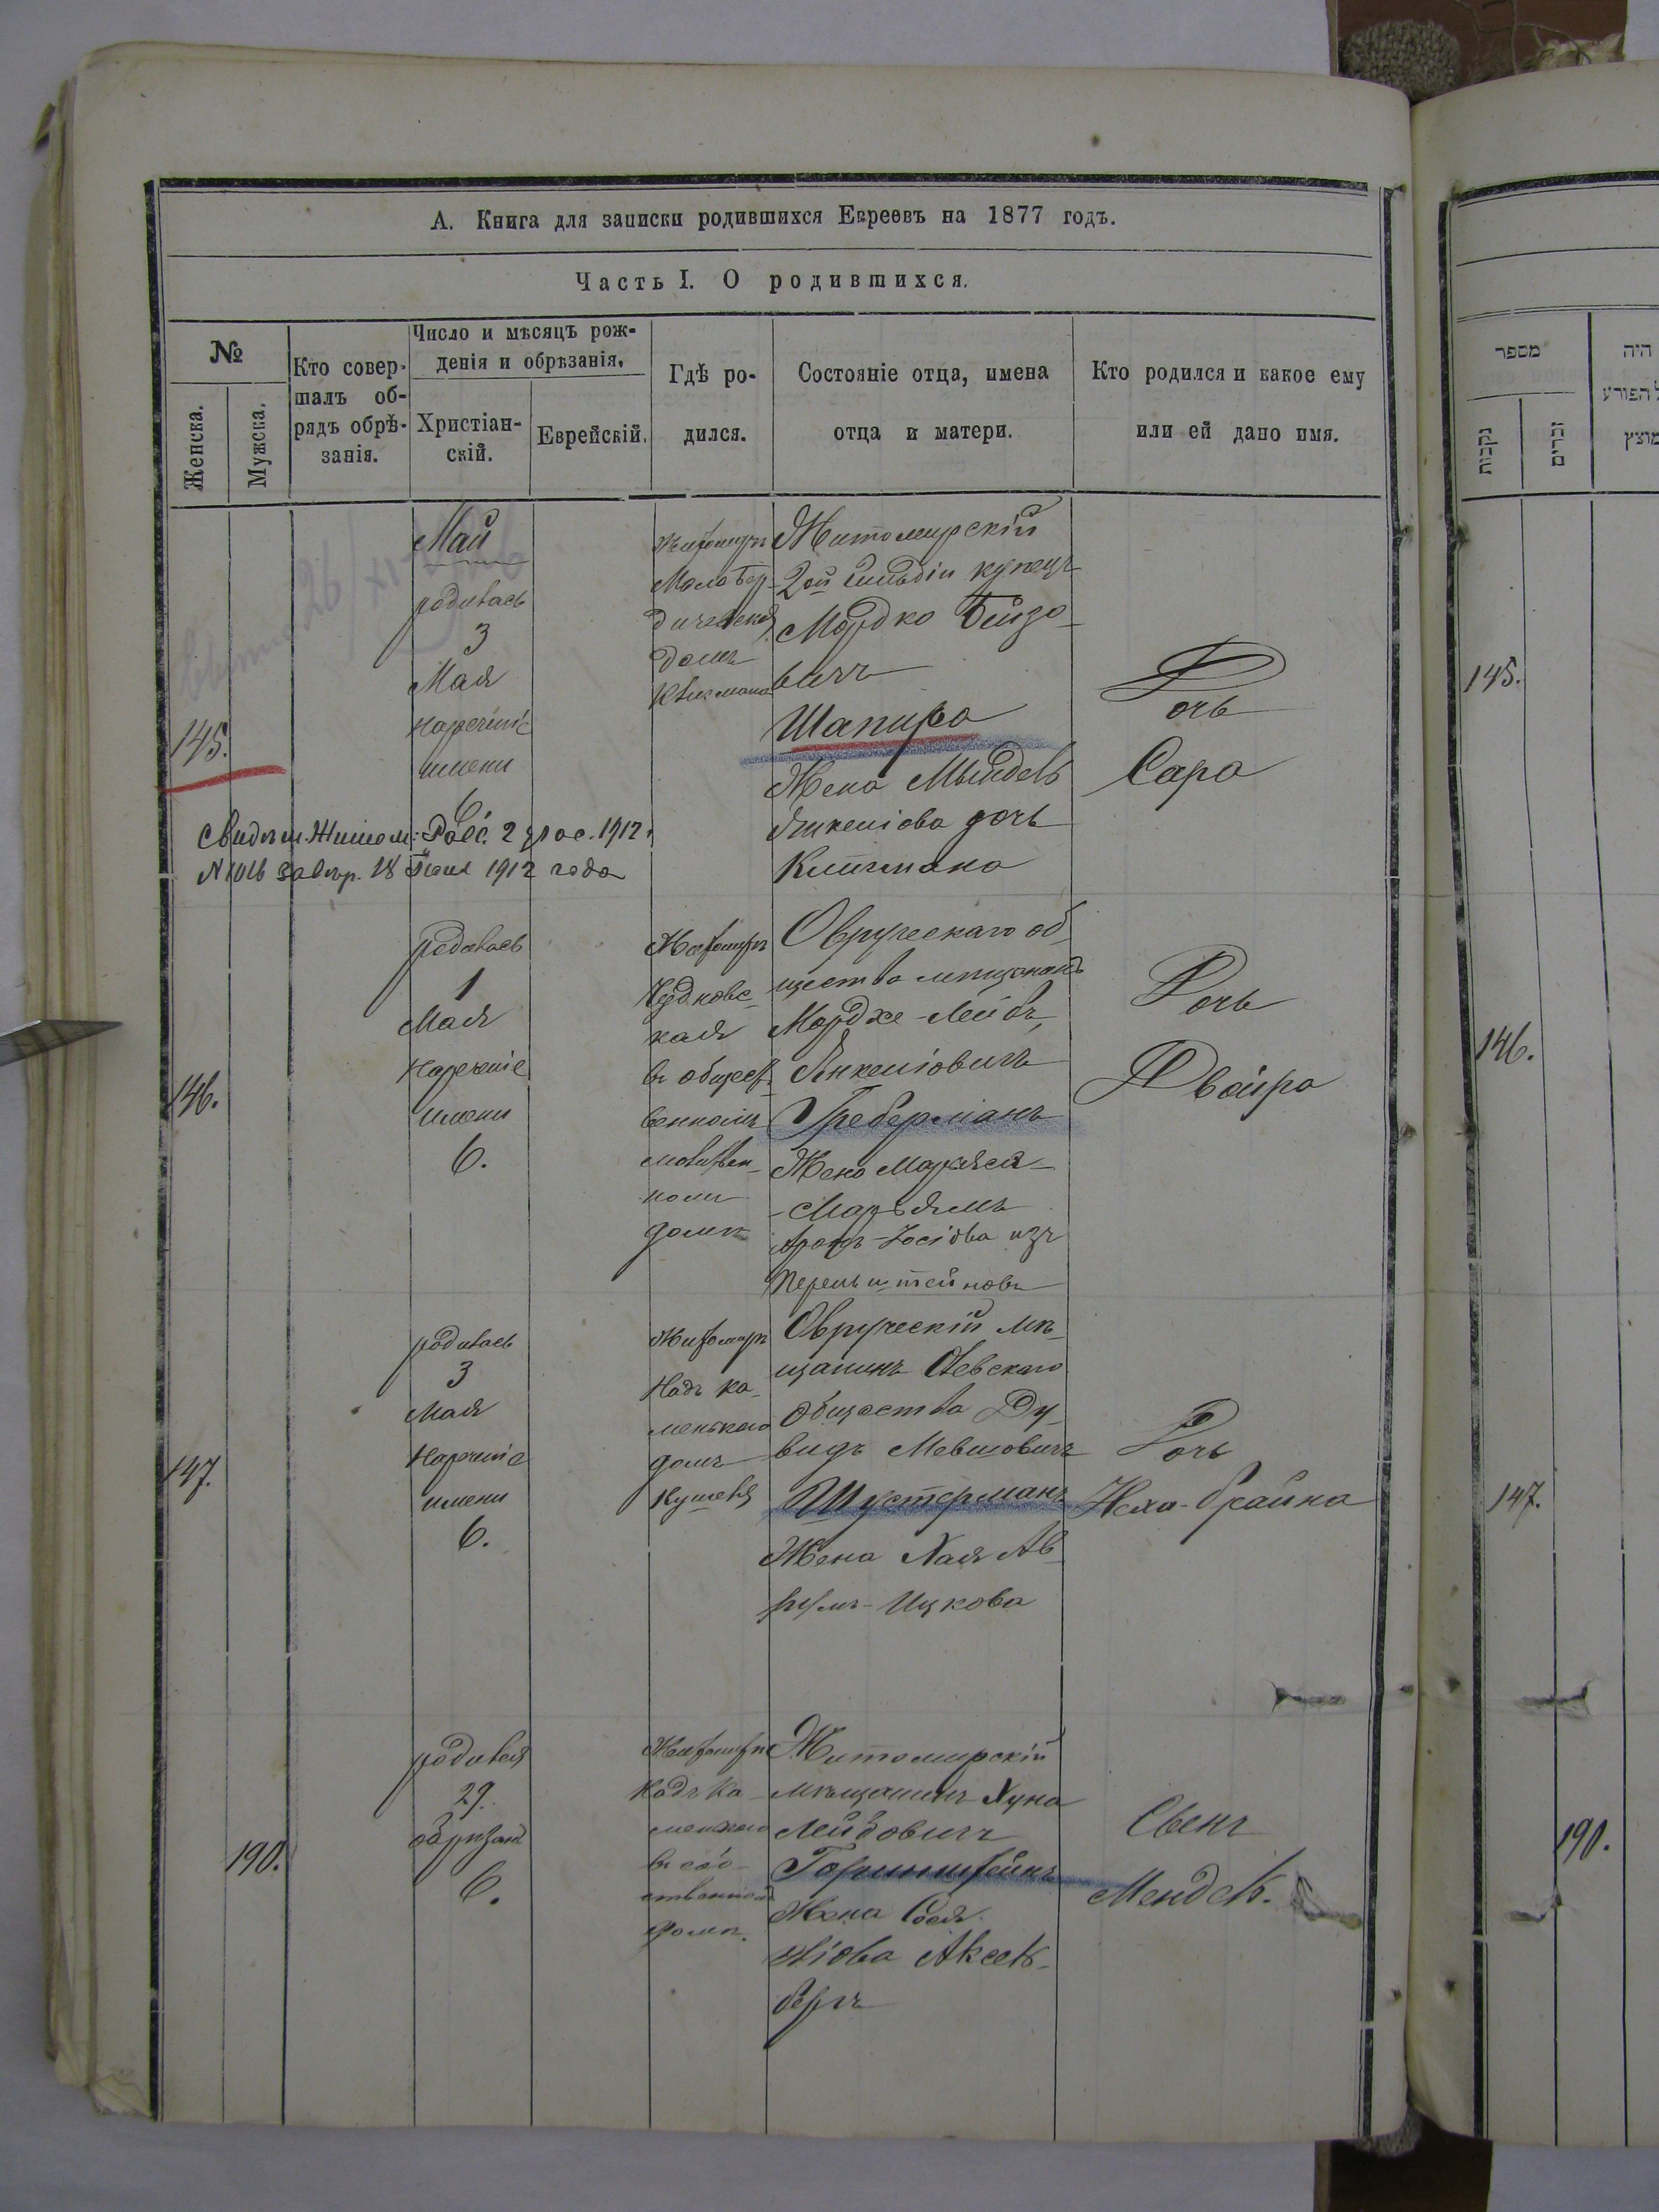 А. Книга для записки родившихся Евреевъ на 1877 годъ.
Часть I. О родившихся.
№
Женска.
Мужска.
Кто совер-
шалъ об-
рядъ обрѣ-
занія.
Число и мѣсяцъ рож-
денія и обрѣзанія.
Христіан-
скій.
Еврейскій.
Гдѣ ро-
дился.
Состояніе отца, имена
отца и матери.
Кто родился и какое ему
или ей дано имя.
145.
Май
родилась
3
Мая
Нареченіе
имени
6.
Житомиръ
Мало Бер-
дичевская
домъ
Клигмана
Житомирскій
2ой Гильдіи купецъ
Мордко Бейзо-
вичъ
Шапиро
Жена Мындель
Янкеліова дочь
Клигмана
Дочь
Сара
Свидѣт. Житом: 2 1912
18 1912 года
146.
родилась
1
Мая
Нареченіе
имени
6.
Житомиръ
Чудновс-
кая
въ общест-
венномъ
молитвен-
номъ
домѣ
Овручскаго об-
щества мѣщанинъ
Мордхе-Лейбъ
Янкеліовичъ
Греберманъ
Жена Маряся-
-Марьямъ
Аронъ-Іосіова изъ
Перельштейновъ
Дочь
Двойра
147.
родилась
3
Мая
Нареченіе
имени
6.
Житомиръ
Надъ Ка-
менкою
домъ
Овручскій мѣ-
щанинъ Олевскаго
общества Ду-
видъ Мевшовичъ
Шустерманъ
Жена Хая Ав-
румъ-Ицкова
Дочь
Неха-Брайна
190.
родился
29.
обрѣзанъ
6.
Житомиръ
Надъ Ка-
менкою
въ соб-
ственномъ
домѣ.
Житомирскій
мѣщанинъ Хуна
Лейбовичъ
Горинштейнъ
Жена Сося
Аксель-
бергъ
Сынъ
Мендель.
מספר
נקבות
זכרים
היה
הפורע
מוצץ
145.
146.
147.
190.